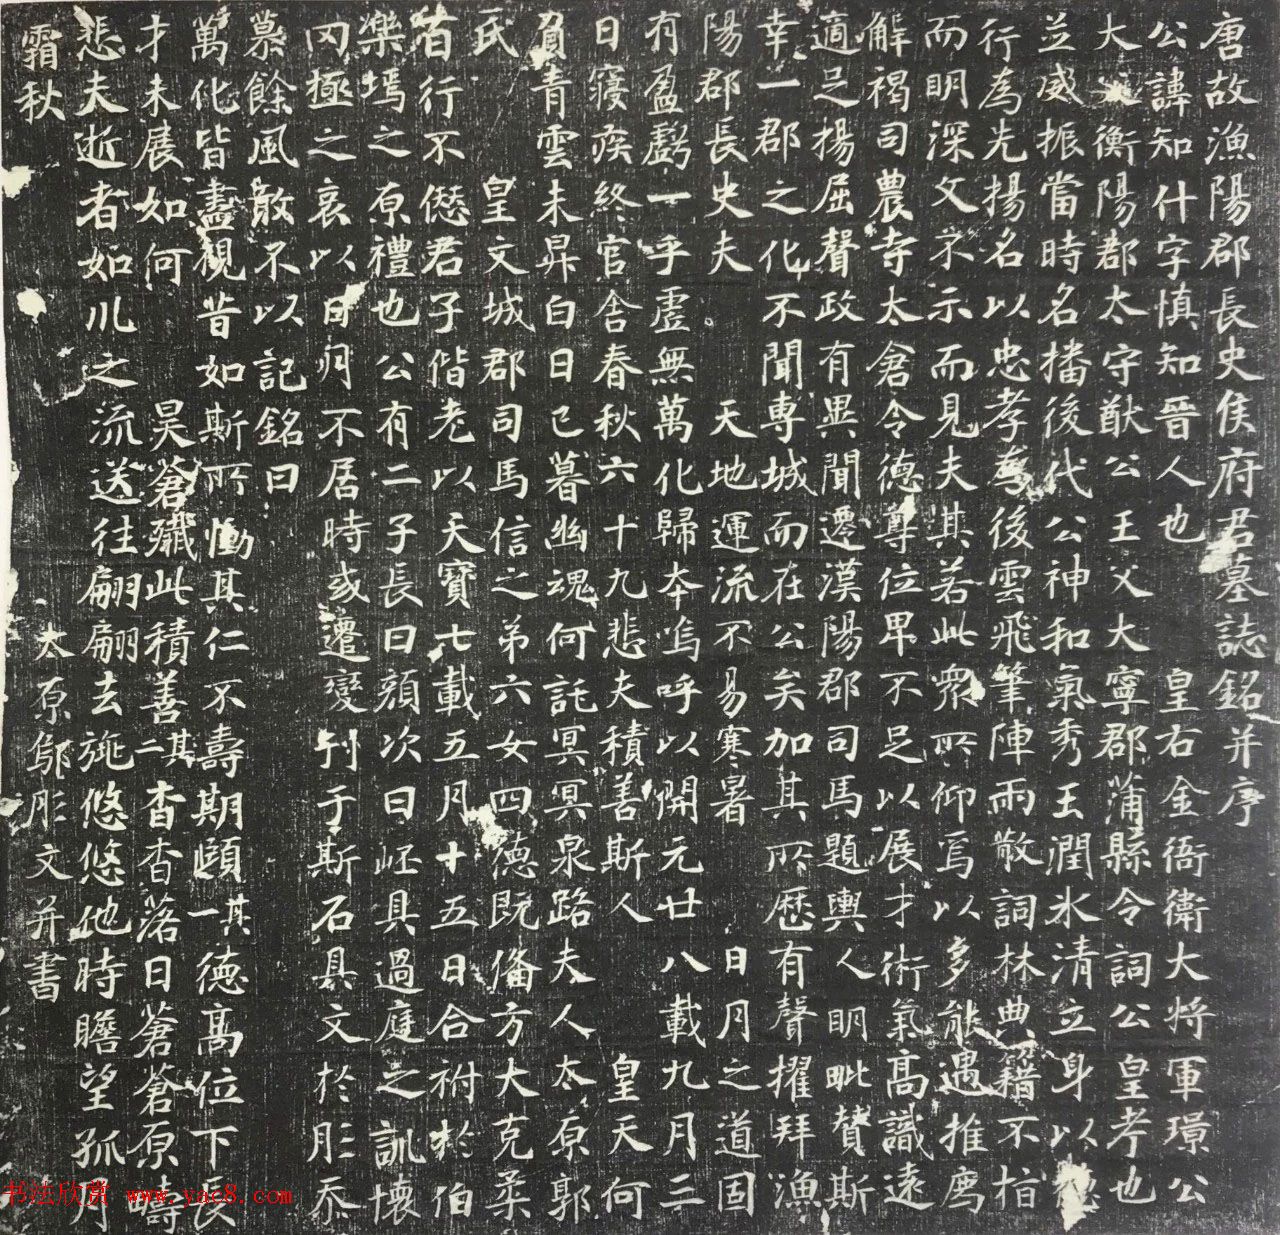 唐故漁陽郡長史侯府君墓誌銘并序
公諱知什字慎知晉人也 皇右金吾衛大將軍璟公
大父衡陽郡太守猷公王父大寧郡蒲縣令詞公皇考也
並威振當時名播後代公神和氣秀玉潤氷清立身以德
行為先揚名以忠孝為後雲飛筆陣雨散詞林典籍不指
而明深文不示而見夫其若此眾所仰焉以多能遇推薦
解褐司農寺太倉令德尊位卑不足以展才術氣高識遠
適足揚屈聲政有異聞遷漢陽郡司馬題輿人明毗贊斯
幸一郡之化不聞專城而在公矣加其所歷有聲擢拜漁
陽郡長史夫 天地運流不易寒暑 日月之道固
有盈虧一乎虛無萬化歸本嗚呼以開元廿八載九月二
日寢疾終官舍春秋六十九悲夫積善斯人 皇天何
負青雲未昇白日已暮幽魂何託冥冥泉路夫人太原郭
氏 皇文城郡司馬信之弟六女四德既俻方大克柔
百行不僁君子偕老以天寶七載五月十五日合祔於伯
樂塢之原禮也公有二子長曰顏次曰岯具過庭之訓懷
罔極之哀以日月不居時或遷變刊于斯石具文於彤忝
慕餘風敢不以記銘曰
萬化皆盡視昔如斯所慟其仁不壽期頤其一德高位下長
才未展如何 昊蒼殲此積善其二杳杳落日蒼蒼原疇
悲夫逝者如川之流送往翩翩去旐悠悠他時瞻望孤月
霜秋 太原鄔彤文并書
书法欣赏 www.yac8.com